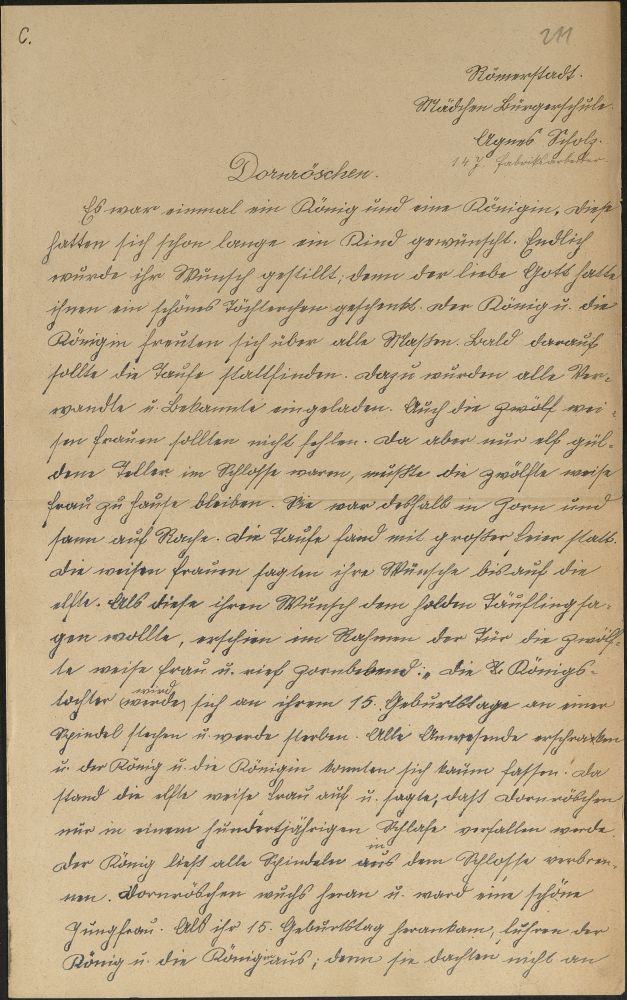 C.
211
Römerstadt.
Mädchen Bürgerschule.
Agnes Scholz.
14 J. Fabriksarbeiter.
Dornröschen.
Es war einmal ein König und eine Königin. Diese
hatten sich schon lange ein Kind gewünscht. Endlich
wurde ihr Wunsch gestillt; denn der liebe Gott hatte
ihnen ein schönes Töchterchen geschenkt. Der König u. die
Königin freuten sich über alle Maßen. Bald darauf
sollte die Taufe stattfinden. Dazu wurden alle Ver-
wandte u. Bekannte eingeladen. Auch die zwölf wei-
sen Frauen sollten nicht fehlen. Da aber nur elf gül-
dene Teller im Schlosse waren, mußte die zwölfte weise
Frau zu Hause bleiben. Sie war deshalb in Zorn und
sann auf Rache. Die Taufe fand mit großer Feier statt.
Die weisen Frauen sagten ihre Wünsche bis auf die
elfte. Als diese ihren Wunsch dem holden Täufling sa-
gen wollte, erschien im Rahmen der Tür die zwölf-
te weise Frau u. rief zornbebend: „Die Königs-
tochter (werde) wird sich an ihrem 15. Geburtstage an einer
Spindel stechen u. werde sterben. Alle Anwesende erschracken
u. der König u. die Königin konnten sich kaum fassen. Da
stand die elfte weise Frau auf u. sagte, daß Dornröschen
nur in einem hundertjährigen Schlafe verfallen werde.
Der König ließ alle Spindeln aus in dem Schlosse verbren-
nen. Dornröschen wuchs heran u. ward eine schöne
Jungfrau. Als ihr 15. Geburtstag herankam, fuhren der
König u. die Königin aus; denn sie dachten nicht an